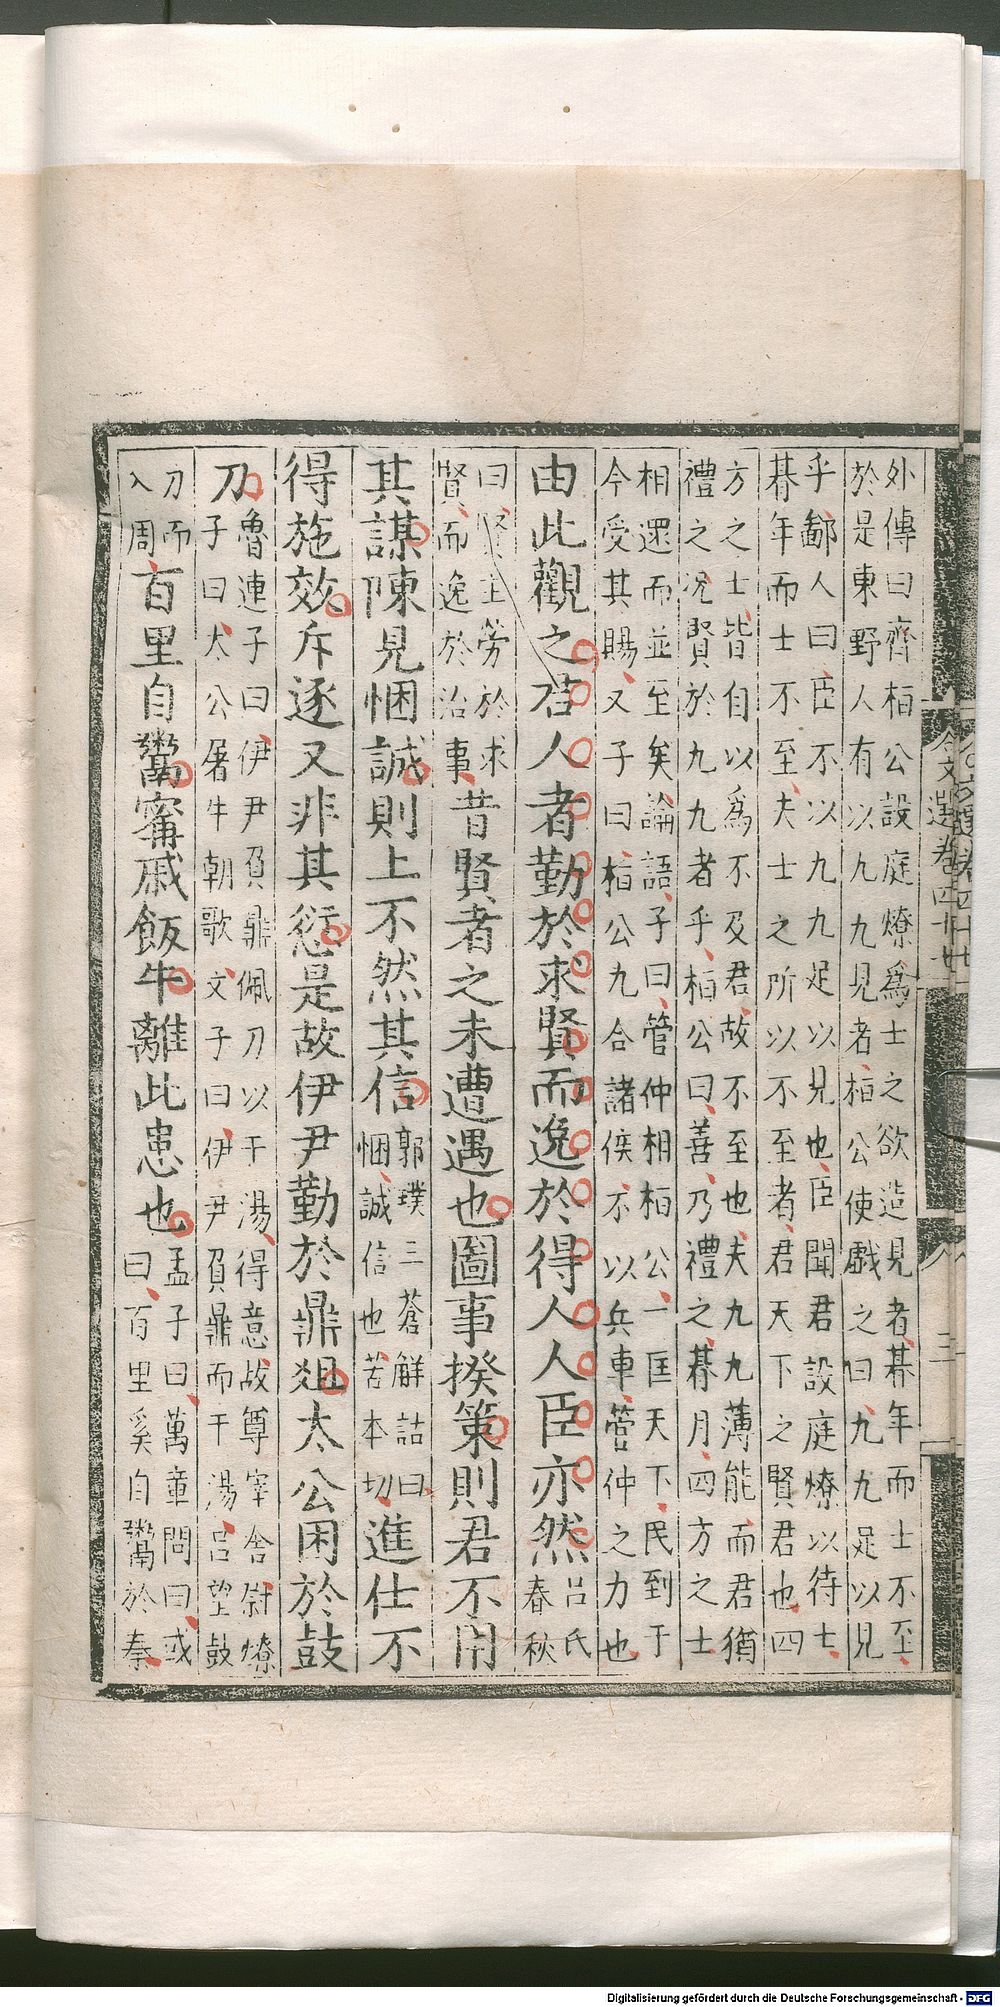 外傳曰齊桓公設庭燎爲士之欲造見者朞年而士不至
於是東野人有以九九見者桓公使戲之曰九九足以見
乎鄙人曰臣不以九九足以見也臣聞君設庭燎以待士
朞年而士不至夫士之所以不至者君天下之賢君也四
方之士皆自以爲不及君故不至也夫九九薄能而君猶
禮之况賢於九九者乎桓公曰善乃禮之朞月四方之士
相還而並至矣論語子曰管仲相桓公一匡天下民到于
今受其賜又子曰桓公九合諸侯不以兵車管仲之力也
由此觀之君人者勤於求賢而逸於得人人臣亦然呂氏春秋
曰賢主勞於求賢而逸於治事昔賢者之未遭遇也圖事揆策則君不用
其謀陳見悃誠則上不然其信郭璞三蒼解詁曰悃誠信也苦本切進仕不
得施效斥逐又非其愆是故伊尹勤於鼎俎太公困於鼓
刀魯連子曰伊尹負鼎佩刀以干湯得意故尊宰舍尉燎子曰太公屠牛朝歌文子曰伊尹負鼎而干湯呂望鼓
刀而入周百里自鬻甯戚飯牛離此患也孟子曰萬章問曰或曰百里奚自鬻於秦
文選卷四十七
三
Digitalisierung gefördert durch die Deutsche Forschungsgemeinschaft - DFG